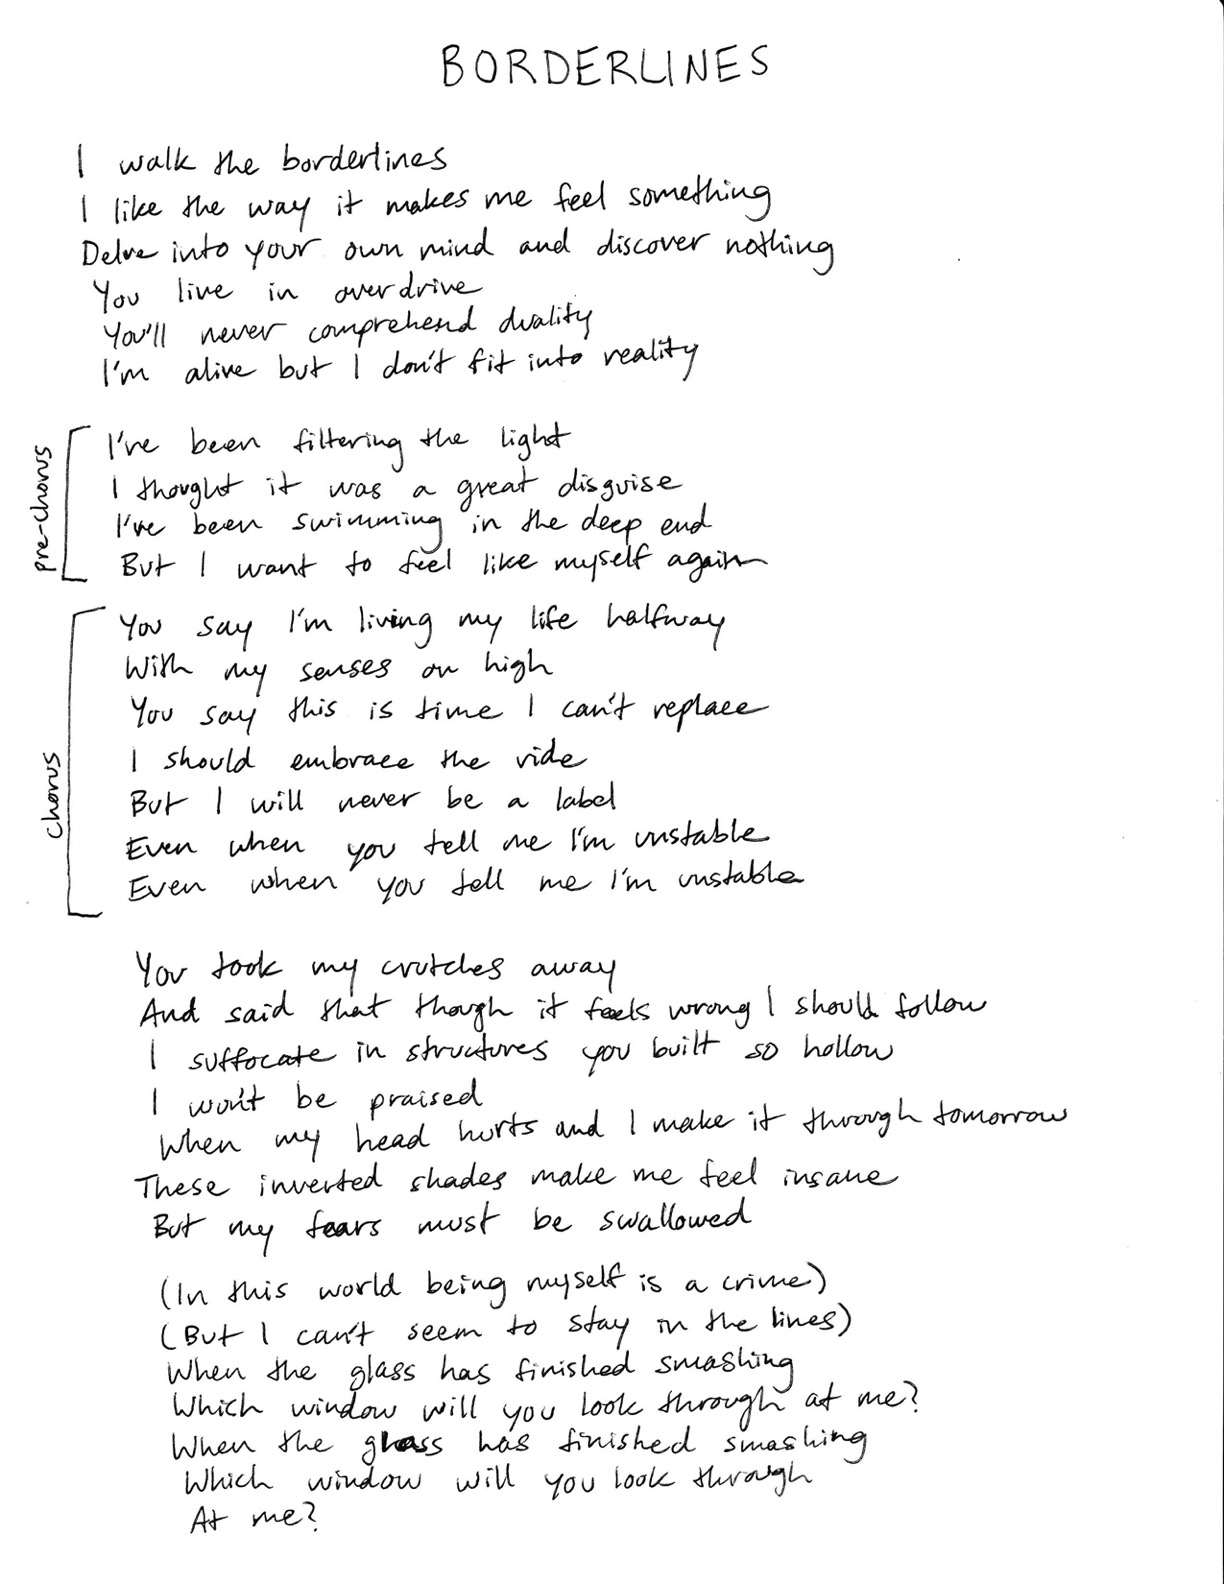 BORDERLINES
I walk the borderlines
I like the way it makes me feel something
Delve into your own mind and discover nothing
You live in overdrive
You'll never comprehend duality
I'm alive but I don't fit into reality
pre-chorus
I've been filtering the light
I thought it was a great disguise
I've been swimming in the deep end
But I want to feel like myself again
chorus
You say I'm living my life halfway
With my senses on high
You say this is time I can't replace
I should embrace the ride
But I will never be a label
Even when you tell me I'm unstable
Even when you tell me I'm unstable
You took my crutches away
And said that though it feels wrong I should follow
I suffocate in structures you built so hollow
I won't be praised
When my head hurts and I make it through tomorrow
These inverted shades make me feel insane
But my fears must be swallowed
(In this world being myself is a crime)
(But I can't seem to stay in the lines)
When the glass has finished smashing
Which window will you look through at me?
When the glass has finished smashing
Which window will you look through
At me?